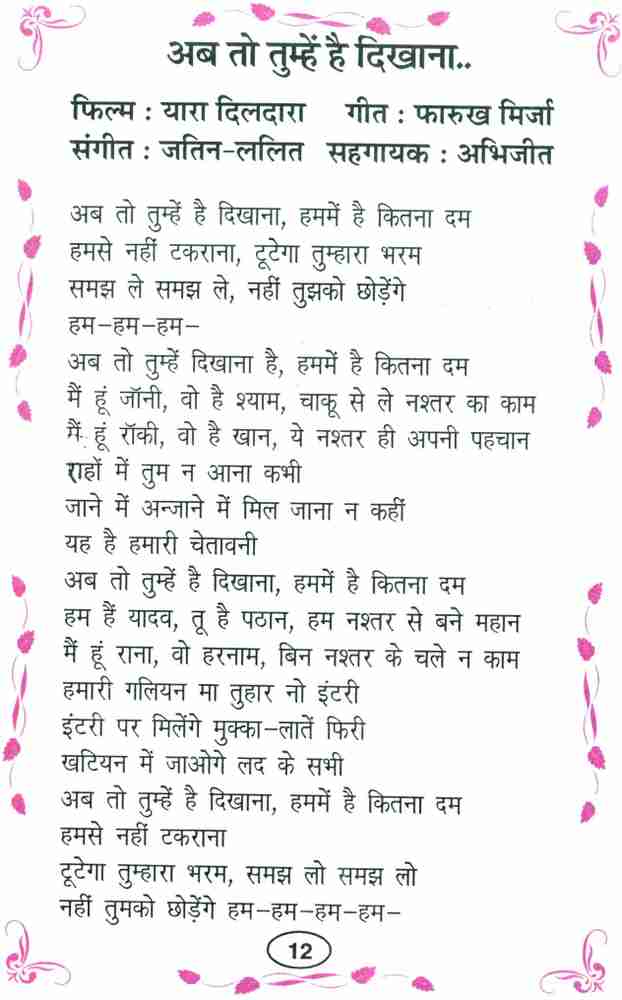 अब तो तुम्हें है दिखाना..
फिल्म : यारा दिलदारा गीत : फारुख मिर्जा
संगीत : जतिन-ललित सहगायक : अभिजीत
अब तो तुम्हें है दिखाना, हममें है कितना दम
हमसे नहीं टकराना, टूटेगा तुम्हारा भरम
समझ ले समझ ले, नहीं तुझको छोड़ेंगे
हम-हम-हम-
अब तो तुम्हें दिखाना है, हममें है कितना दम
मैं हूं जॉनी, वो है श्याम, चाकू से ले नश्तर का काम
मैं हूं रॉकी, वो है खान, ये नश्तर ही अपनी पहचान
राहों में तुम न आना कभी
जाने में अन्जाने में मिल जाना न कहीं
यह है हमारी चेतावनी
अब तो तुम्हें है दिखाना, हममें है कितना दम
हम हैं यादव, तू है पठान, हम नश्तर से बने महान
मैं हूं राना, वो हरनाम, बिन नश्तर के चले न काम
हमारी गलियन मा तुहार नो इंटरी
इंटरी पर मिलेंगे मुक्का-लातें फिरी
खटियन में जाओगे लद के सभी
अब तो तुम्हें है दिखाना, हममें है कितना दम
हमसे नहीं टकराना
टूटेगा तुम्हारा भरम, समझ लो समझ लो
नहीं तुमको छोड़ेंगे हम-हम-हम-हम-
12